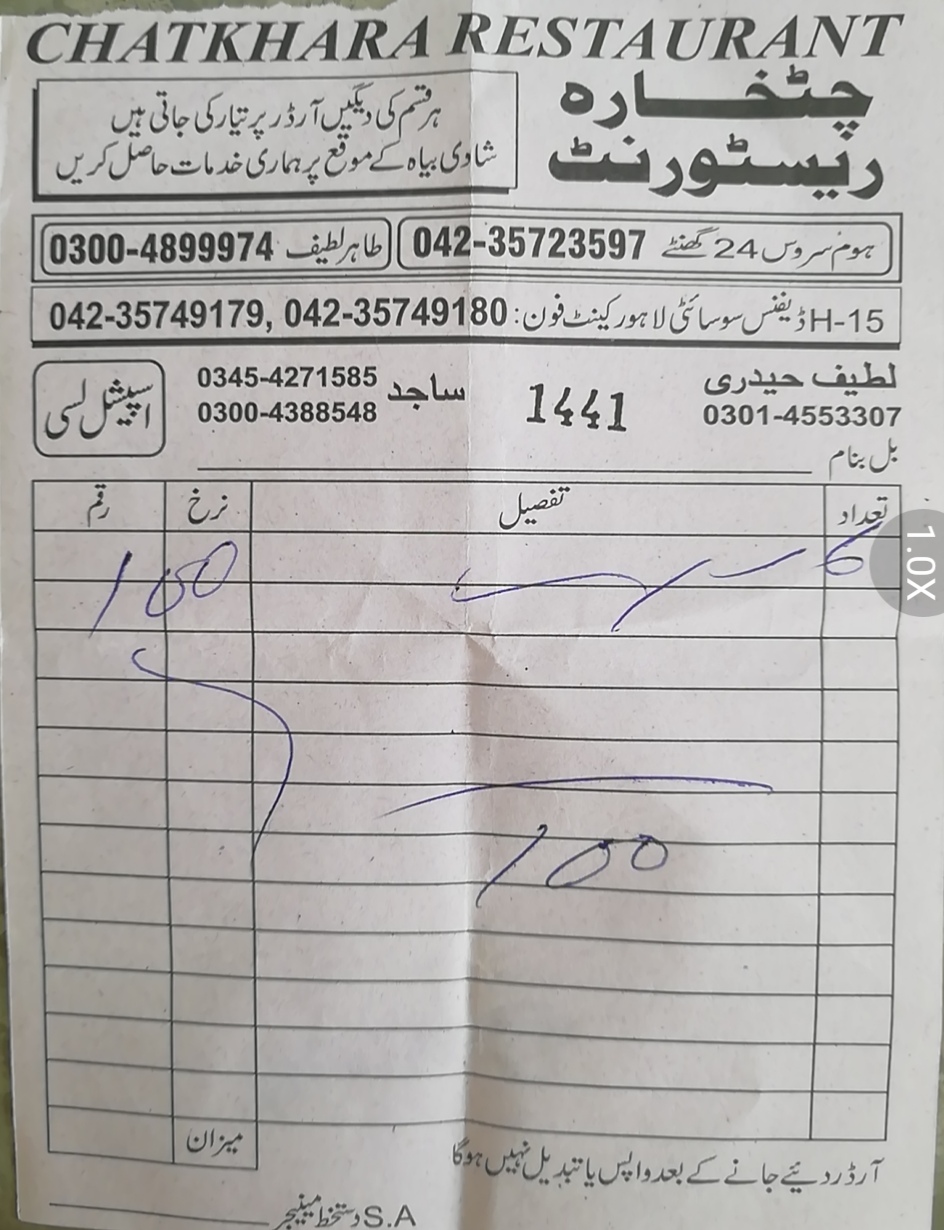 CHATKHARA RESTAURANT
چٹخارہ
ریسٹورنٹ
ہر قسم کی دیگیں آرڈر پر تیار کی جاتی ہیں
شادی بیاہ کے موقع پر ہماری خدمات حاصل کریں
ہوم سروس 24 گھنٹے 042-35723597
طاہر لطیف 0300-4899974
15-H ڈیفنس سوسائٹی لاہور کینٹ فون: 042-35749179, 042-35749180
لطیف حیدری
0301-4553307
1441
ساجد 0345-4271585
0300-4388548
اسپیشل لسی
بل بنام
تعداد تفصیل نرخ رقم
100
100
میزان
آرڈر دیئے جانے کے بعد واپس یا تبدیل نہیں ہوگا
S.A دستخط مینیجر
1.0X